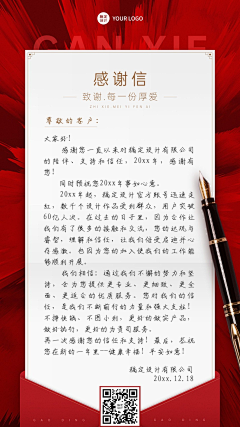 稿定设计 YOUR LOGO
GAN XIE
感谢信
致谢.每一份厚爱
ZHI XIE MEI YI FEN AI
尊敬的客户:
大家好!
感谢您一直以来对稿定设计有限公司
的陪伴、支持和信任, 20xx年, 感谢有
您!
同时预祝您20xx年事如心意。
20xx年起, 稿定设计官方账号迅速走
红, 数千个设计作品受到群众, 用户突破
60亿人次, 在过去的日子里, 因为合作让
我们有了很多的接触和交流, 您的达观与
睿智, 理解和信任, 让我们倍受启迪开心
存感激, 也因为您的加入使我们的工作能
够顺利开展。
我们相信: 通过我们不懈的努力和坚
持, 会为您提供更专业、更细致、更全
面、更适合的优质服务。您对我们的信
任, 是我们不断前行的力量和强大支柱!
不挣快钱、不图小利; 更好的做实产品;
做好銷售; 更好的为贵司服务。
再一次感谢您的信任和支持! 最后, 恭祝
您在新的一年里一健康幸福! 平安如意!
稿定设计有限公司
20xx.12.18